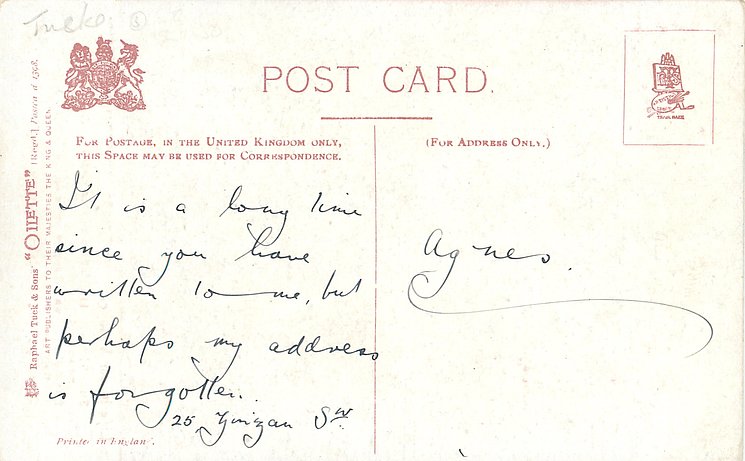 Tucks
POST CARD.
FOR POSTAGE, IN THE UNITED KINGDOM ONLY,
THIS SPACE MAY BE USED FOR CORRESPONDENCE.
(FOR ADDRESS ONLY.)
Raphael Tuck & Sons' "OILETTE" [Regd.] Postcard 1398.
ART PUBLISHERS TO THEIR MAJESTIES THE KING & QUEEN.
It is a long time
since you have
written to me, but
perhaps my address
is forgotten.
25
Agnes.
Printed in England.
TRADE MARK